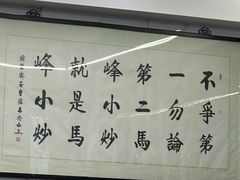 不爭第
一勿論
第二馬
峰小炒
就是馬
峰小炒